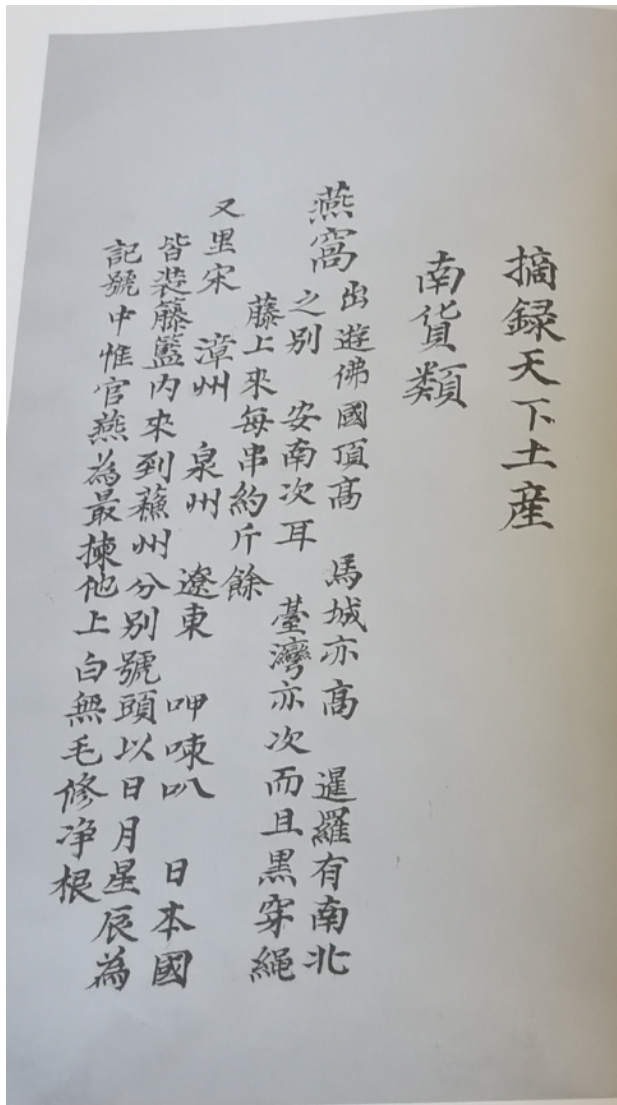 摘録天下土産
南貨類
燕窩 出遊佛國頂高 馬城亦高 暹羅有南北
之別 安南次耳 臺灣亦次而且黒穿繩
藤上來每串約斤餘
又里宋 漳州 泉州 遼東 呷喇叭 日本國
皆装籐籃内來到蘓州分别號頭以日月星辰為
記號中惟官燕為最揀他上白無毛修净根